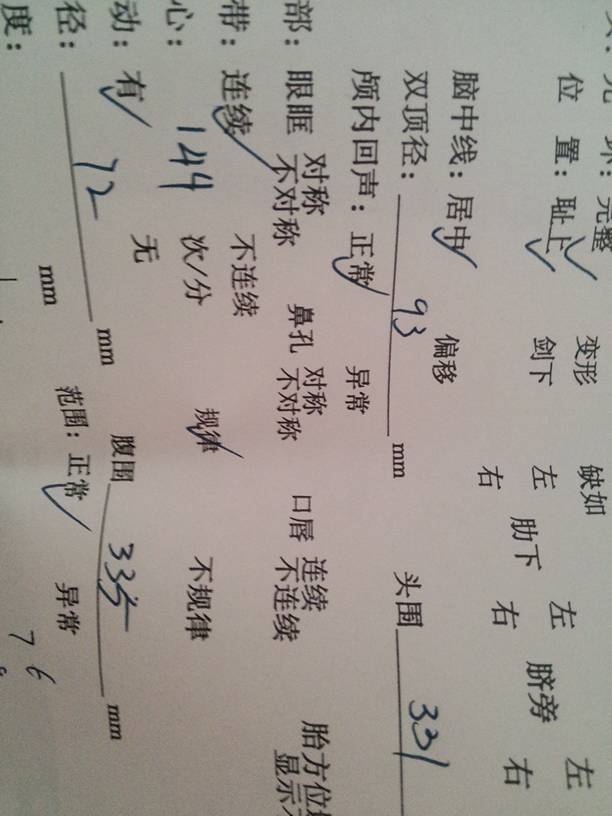 完整 变形 缺如
位 置：耻上 剑下 左 右 肋下 左 右 脐旁 左 右
脑中线：居中 偏移
双顶径：93 mm 头围 331
颅内回声：正常 异常
部：眼眶 对称 不对称 鼻孔 对称 不对称 口唇 连续 不连续 胎方位 显示
带：连续 不连续
心：144 次/分 规律 不规律
动：有 无
径：72 mm 腹围 335 mm
度： mm 范围：正常 异常
76